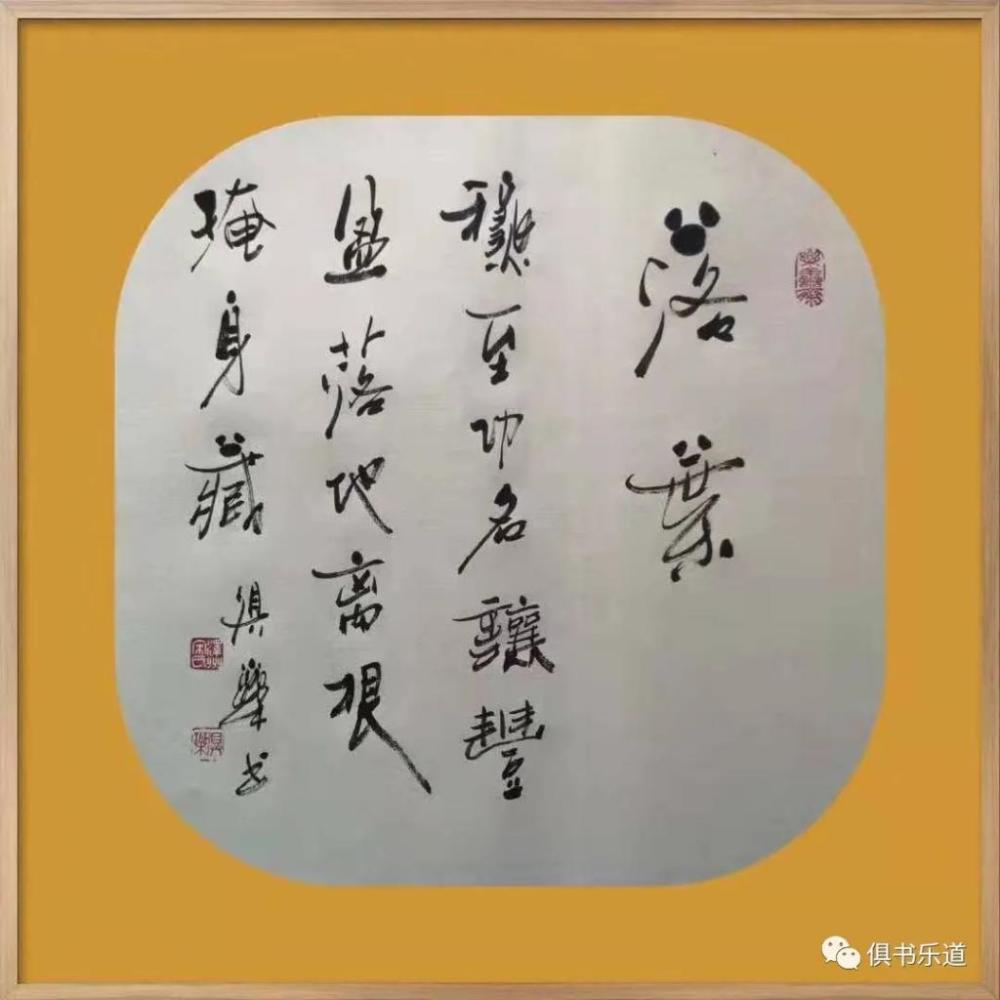 落葉
龝至功名讓豐
盈落地离根
掩身藏
俱樂书
俱书乐道